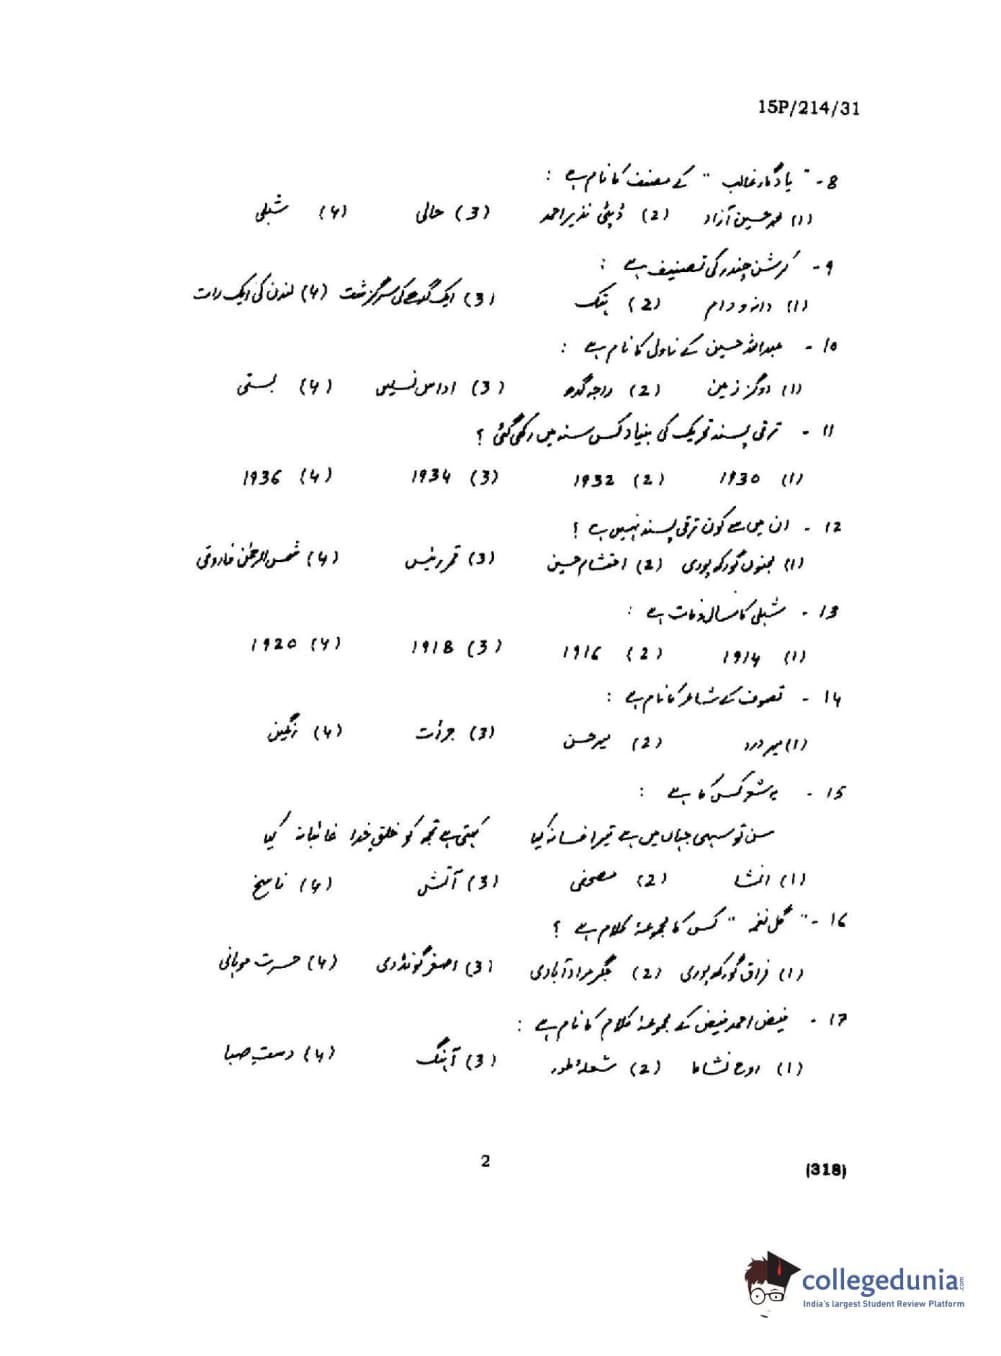 15P/214/31
8- "یادگار غالب" کے مصنف کا نام ہے :
(1) محمد حسین آزاد (2) ڈپٹی نذیر احمد (3) حالی (4) شبلی
9- کرشن چندر کی تصنیف ہے :
(1) دانہ و دام (2) ہتک (3) ایک گدھے کی سرگزشت (4) لندن کی ایک رات
10- عبداللہ حسین کے ناول کا نام ہے :
(1) دو گز زمین (2) راجہ گدھ (3) اداس نسلیں (4) بستی
11- ترقی پسند تحریک کی بنیاد کس سنہ میں رکھی گئی ؟
(1) 1930 (2) 1932 (3) 1934 (4) 1936
12- ان میں سے کون ترقی پسند نہیں ہے ؟
(1) مجنوں گورکھپوری (2) احتشام حسین (3) قمر رئیس (4) شمس الرحمٰن فاروقی
13- شبلی کا سال وفات ہے :
(1) 1914 (2) 1916 (3) 1918 (4) 1920
14- تصوف کے شاعر کا نام ہے :
(1) میر درد (2) میر حسن (3) جرأت (4) رنگین
15- یہ شعر کس کا ہے :
سن تو سہی جہاں میں ہے تیرا فسانہ کیا کہتی ہے تجھ کو خلق خدا غائبانہ کیا
(1) انشا (2) مصحفی (3) آتش (4) ناسخ
16- "گل نغمہ" کس کا مجموعۂ کلام ہے ؟
(1) فراق گورکھپوری (2) جگر مرادآبادی (3) اصغر گونڈوی (4) حسرت موہانی
17- فیض احمد فیض کے مجموعۂ کلام کا نام ہے :
(1) روح نشاط (2) شعلۂ طور (3) آہنگ (4) دست صبا
2
(318)
collegedunia.com
India's largest Student Review Platform